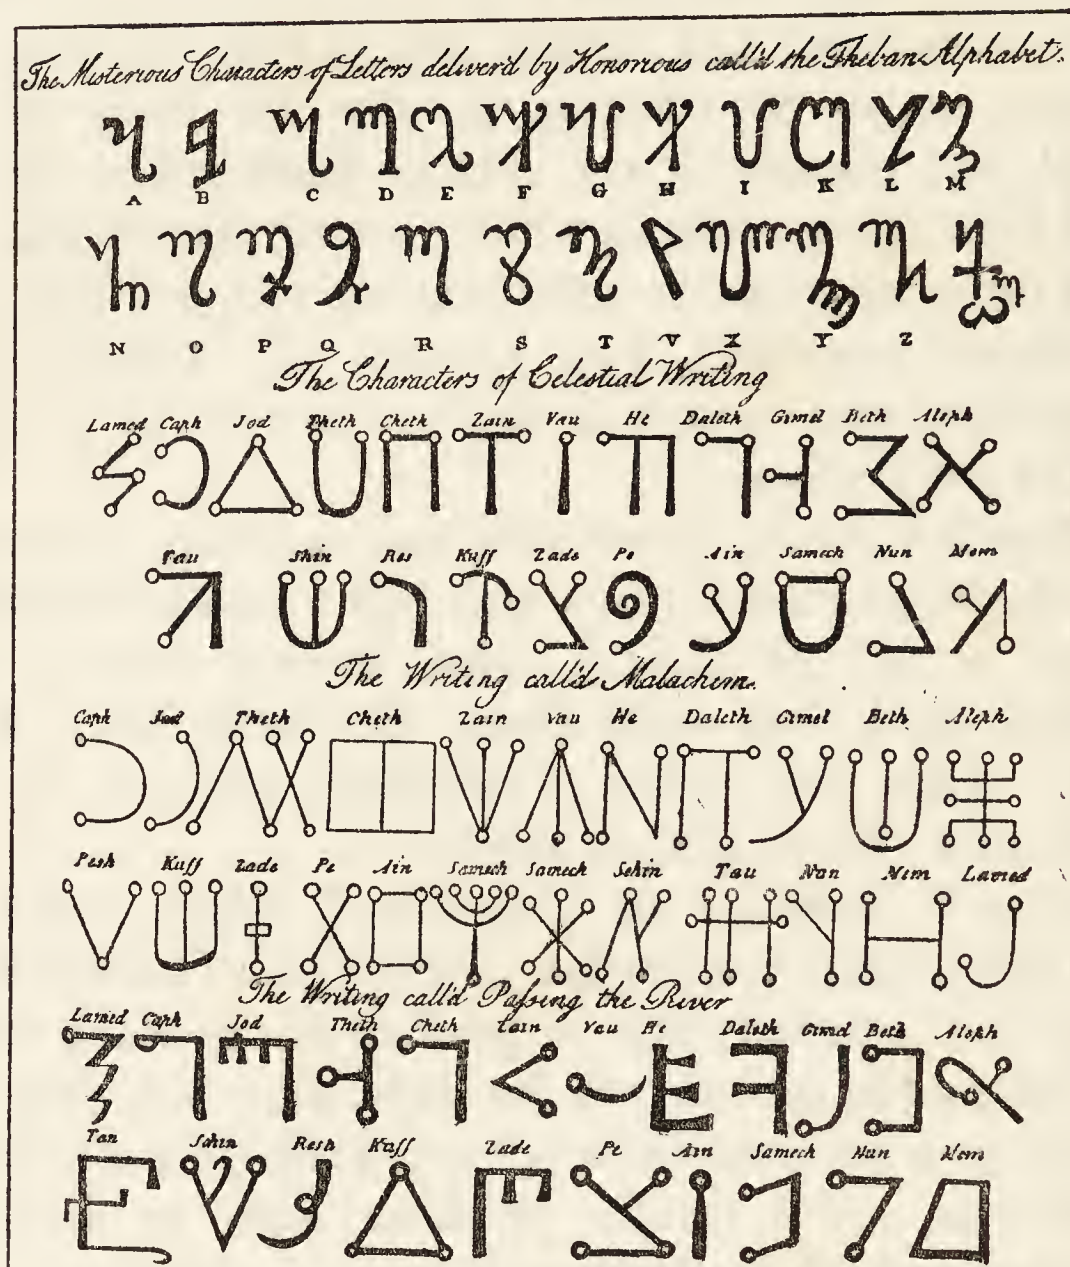 The Misterious Characters of Letters deliver'd by Honorious call'd the Theban Alphabet.
A B C D E F G H I K L M
N O P Q R S T V X Y Z
The Characters of Celestial Writing
Lamed Caph Jod Theth Cheth Zain Vau He Daleth Gimel Beth Aleph
Tau Shin Res Kuff Zade Pe Ain Samech Nun Mem
The Writing call'd Malachem.
Caph Jod Theth Cheth Zain Vau He Daleth Gimel Beth Aleph
Resh Kuff Zade Pe Ain Samech Samech Schin Tau Nun Mem Lamed
The Writing call'd Paſsing the River
Lamed Caph Jod Theth Cheth Zain Vau He Daleth Gimel Beth Aleph
Tau Schin Resh Kuff Zade Pe Ain Samech Nun Mem